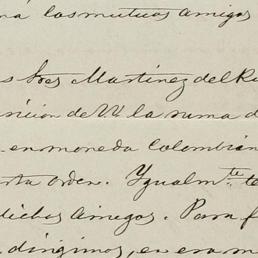 los mutuos amigos
Sres Martinez del R
sicion de VV la suma d
en moneda colombian
sta orden. Ygualmte te
dichos amigos. Para f
dirigimos, en era m